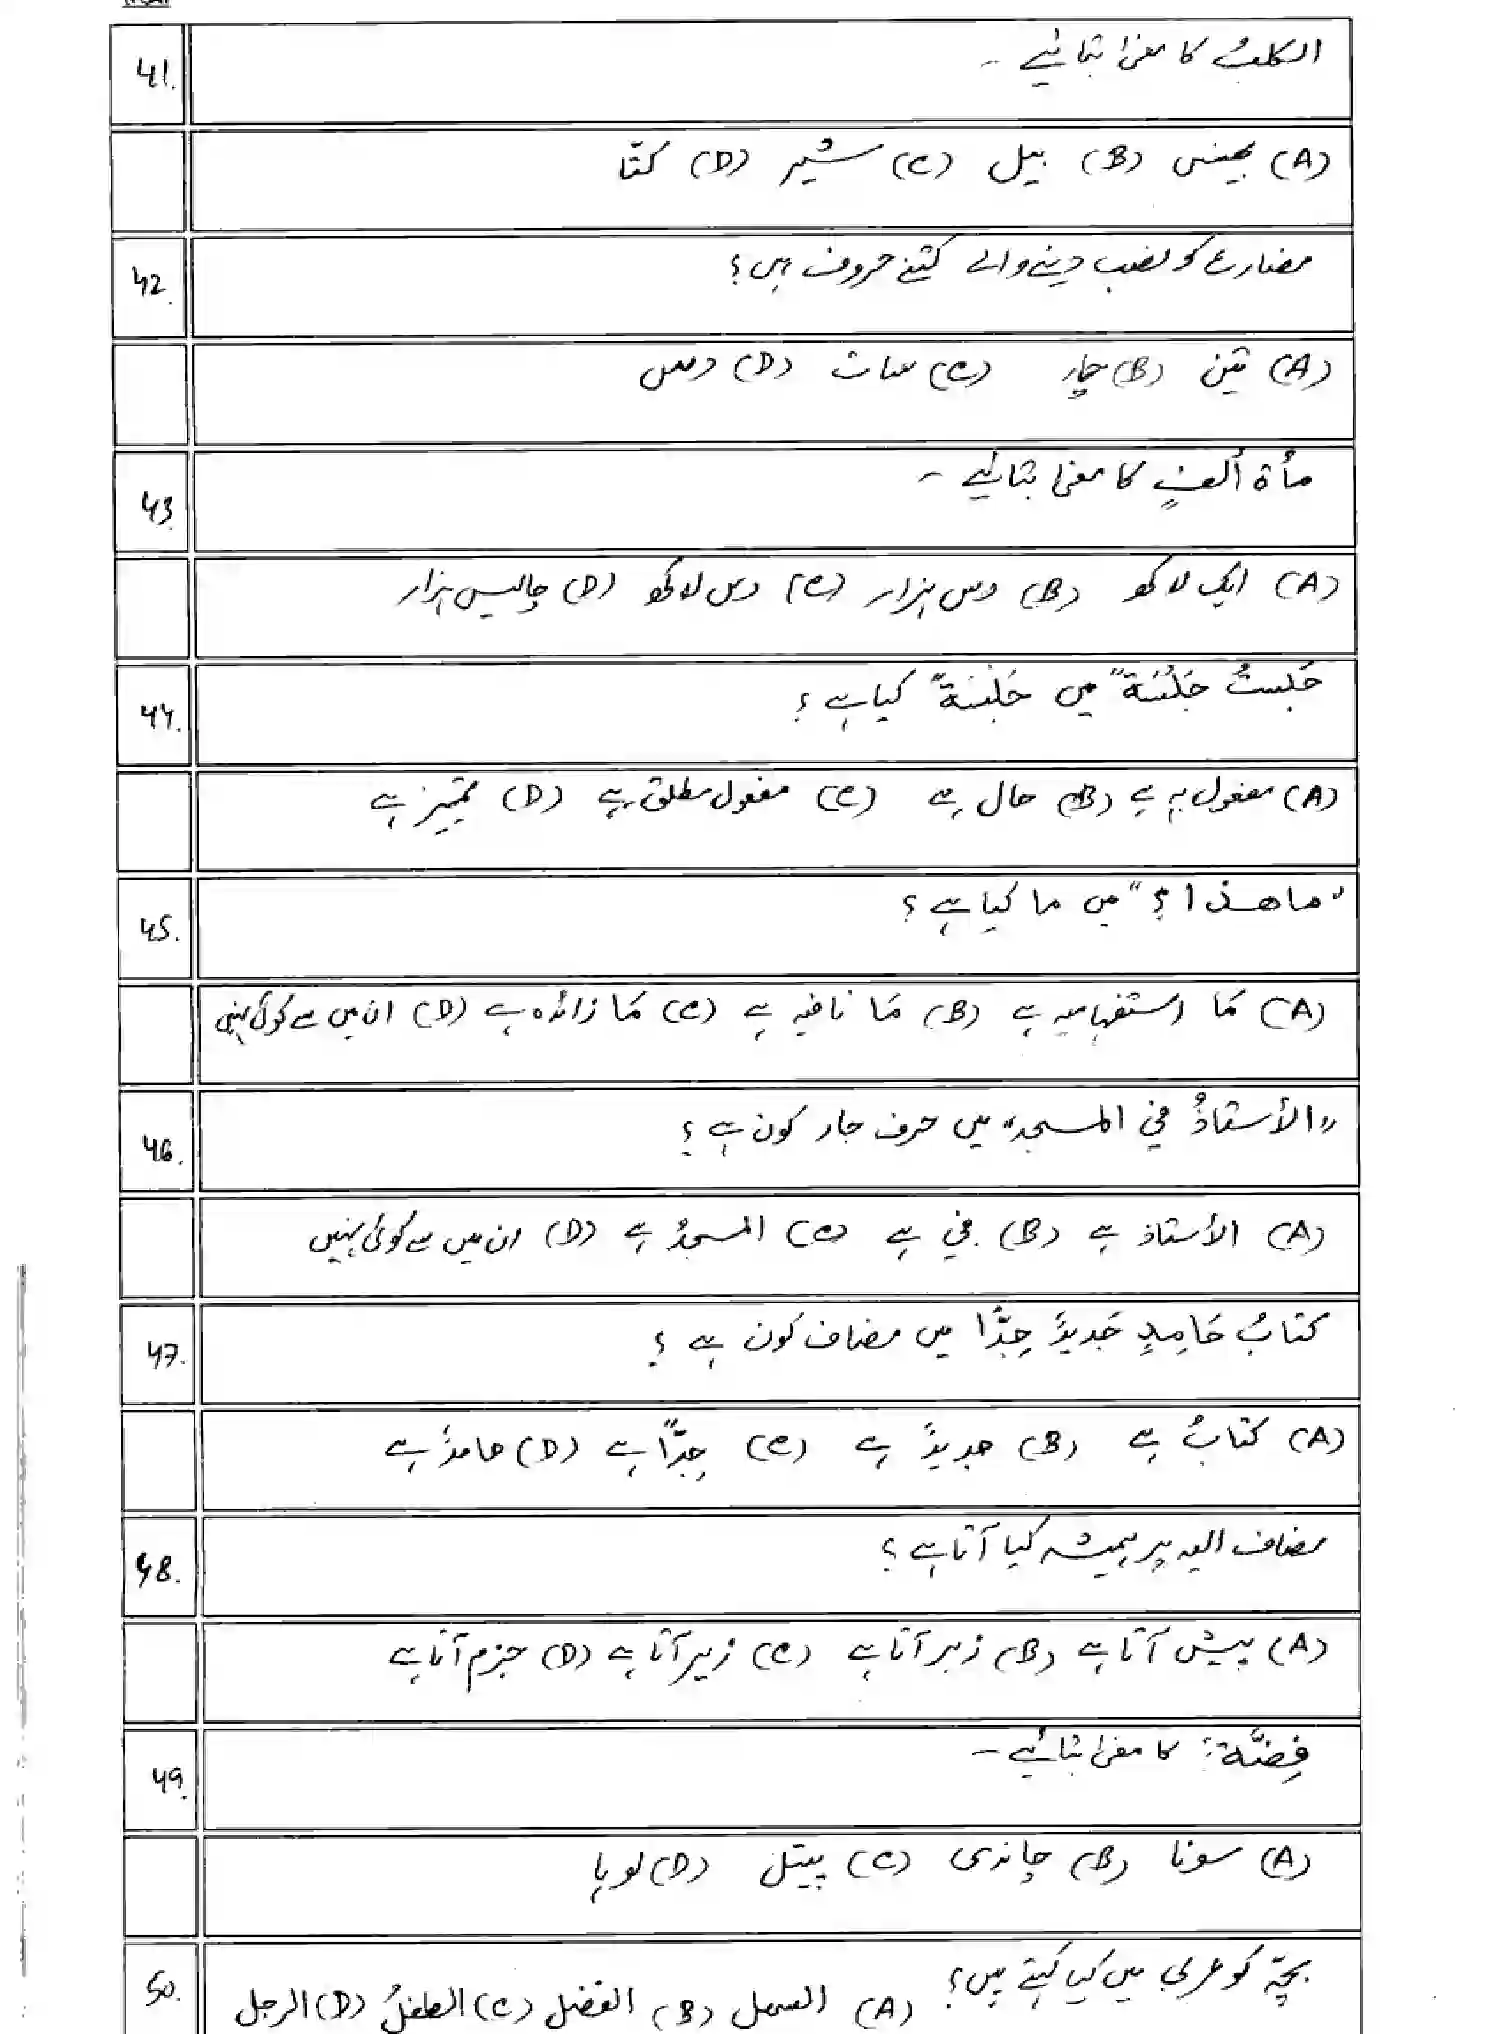 41.
الکلبُ کا معنیٰ بتائیے ۔
(A) بھینس (B) بیل (C) شیر (D) کتّا
42.
مضارع کو نصب دینے والے کتنے حروف ہیں؟
(A) تین (B) چار (C) سات (D) دس
43.
مأۃ ألفٍ کا معنیٰ بتائیے ۔
(A) ایک لاکھ (B) دس ہزار (C) دس لاکھ (D) چالیس ہزار
44.
جَلستُ جَلْسَةً" میں جَلْسَةً" کیا ہے ؟
(A) مفعول بہ ہے (B) حال ہے (C) مفعول مطلق ہے (D) تمییز ہے
45.
"ما هذا ؟" میں ما کیا ہے ؟
(A) مَا استفہامیہ ہے (B) مَا نافیہ ہے (C) مَا زائدہ ہے (D) ان میں سے کوئی نہیں
46.
"الأستاذُ في المسجد" میں حرف جار کون ہے ؟
(A) الأستاذ ہے (B) في ہے (C) المسجدُ ہے (D) ان میں سے کوئی نہیں
47.
کتابُ حَامِدٍ جَدیدٌ جِدًّا میں مضاف کون ہے ؟
(A) کتابُ ہے (B) جدیدٌ ہے (C) جِدًّا ہے (D) حامدٌ ہے
48.
مضاف الیہ پر ہمیشہ کیا آتا ہے ؟
(A) پیش آتا ہے (B) زبر آتا ہے (C) زیر آتا ہے (D) جزم آتا ہے
49.
فِضَّة: کا معنیٰ بتائیے ۔
(A) سونا (B) چاندی (C) پیتل (D) لوہا
50.
بچّہ کو عربی میں کیا کہتے ہیں؟
(A) (B) الفضل (C) الطفلُ (D) الرجل